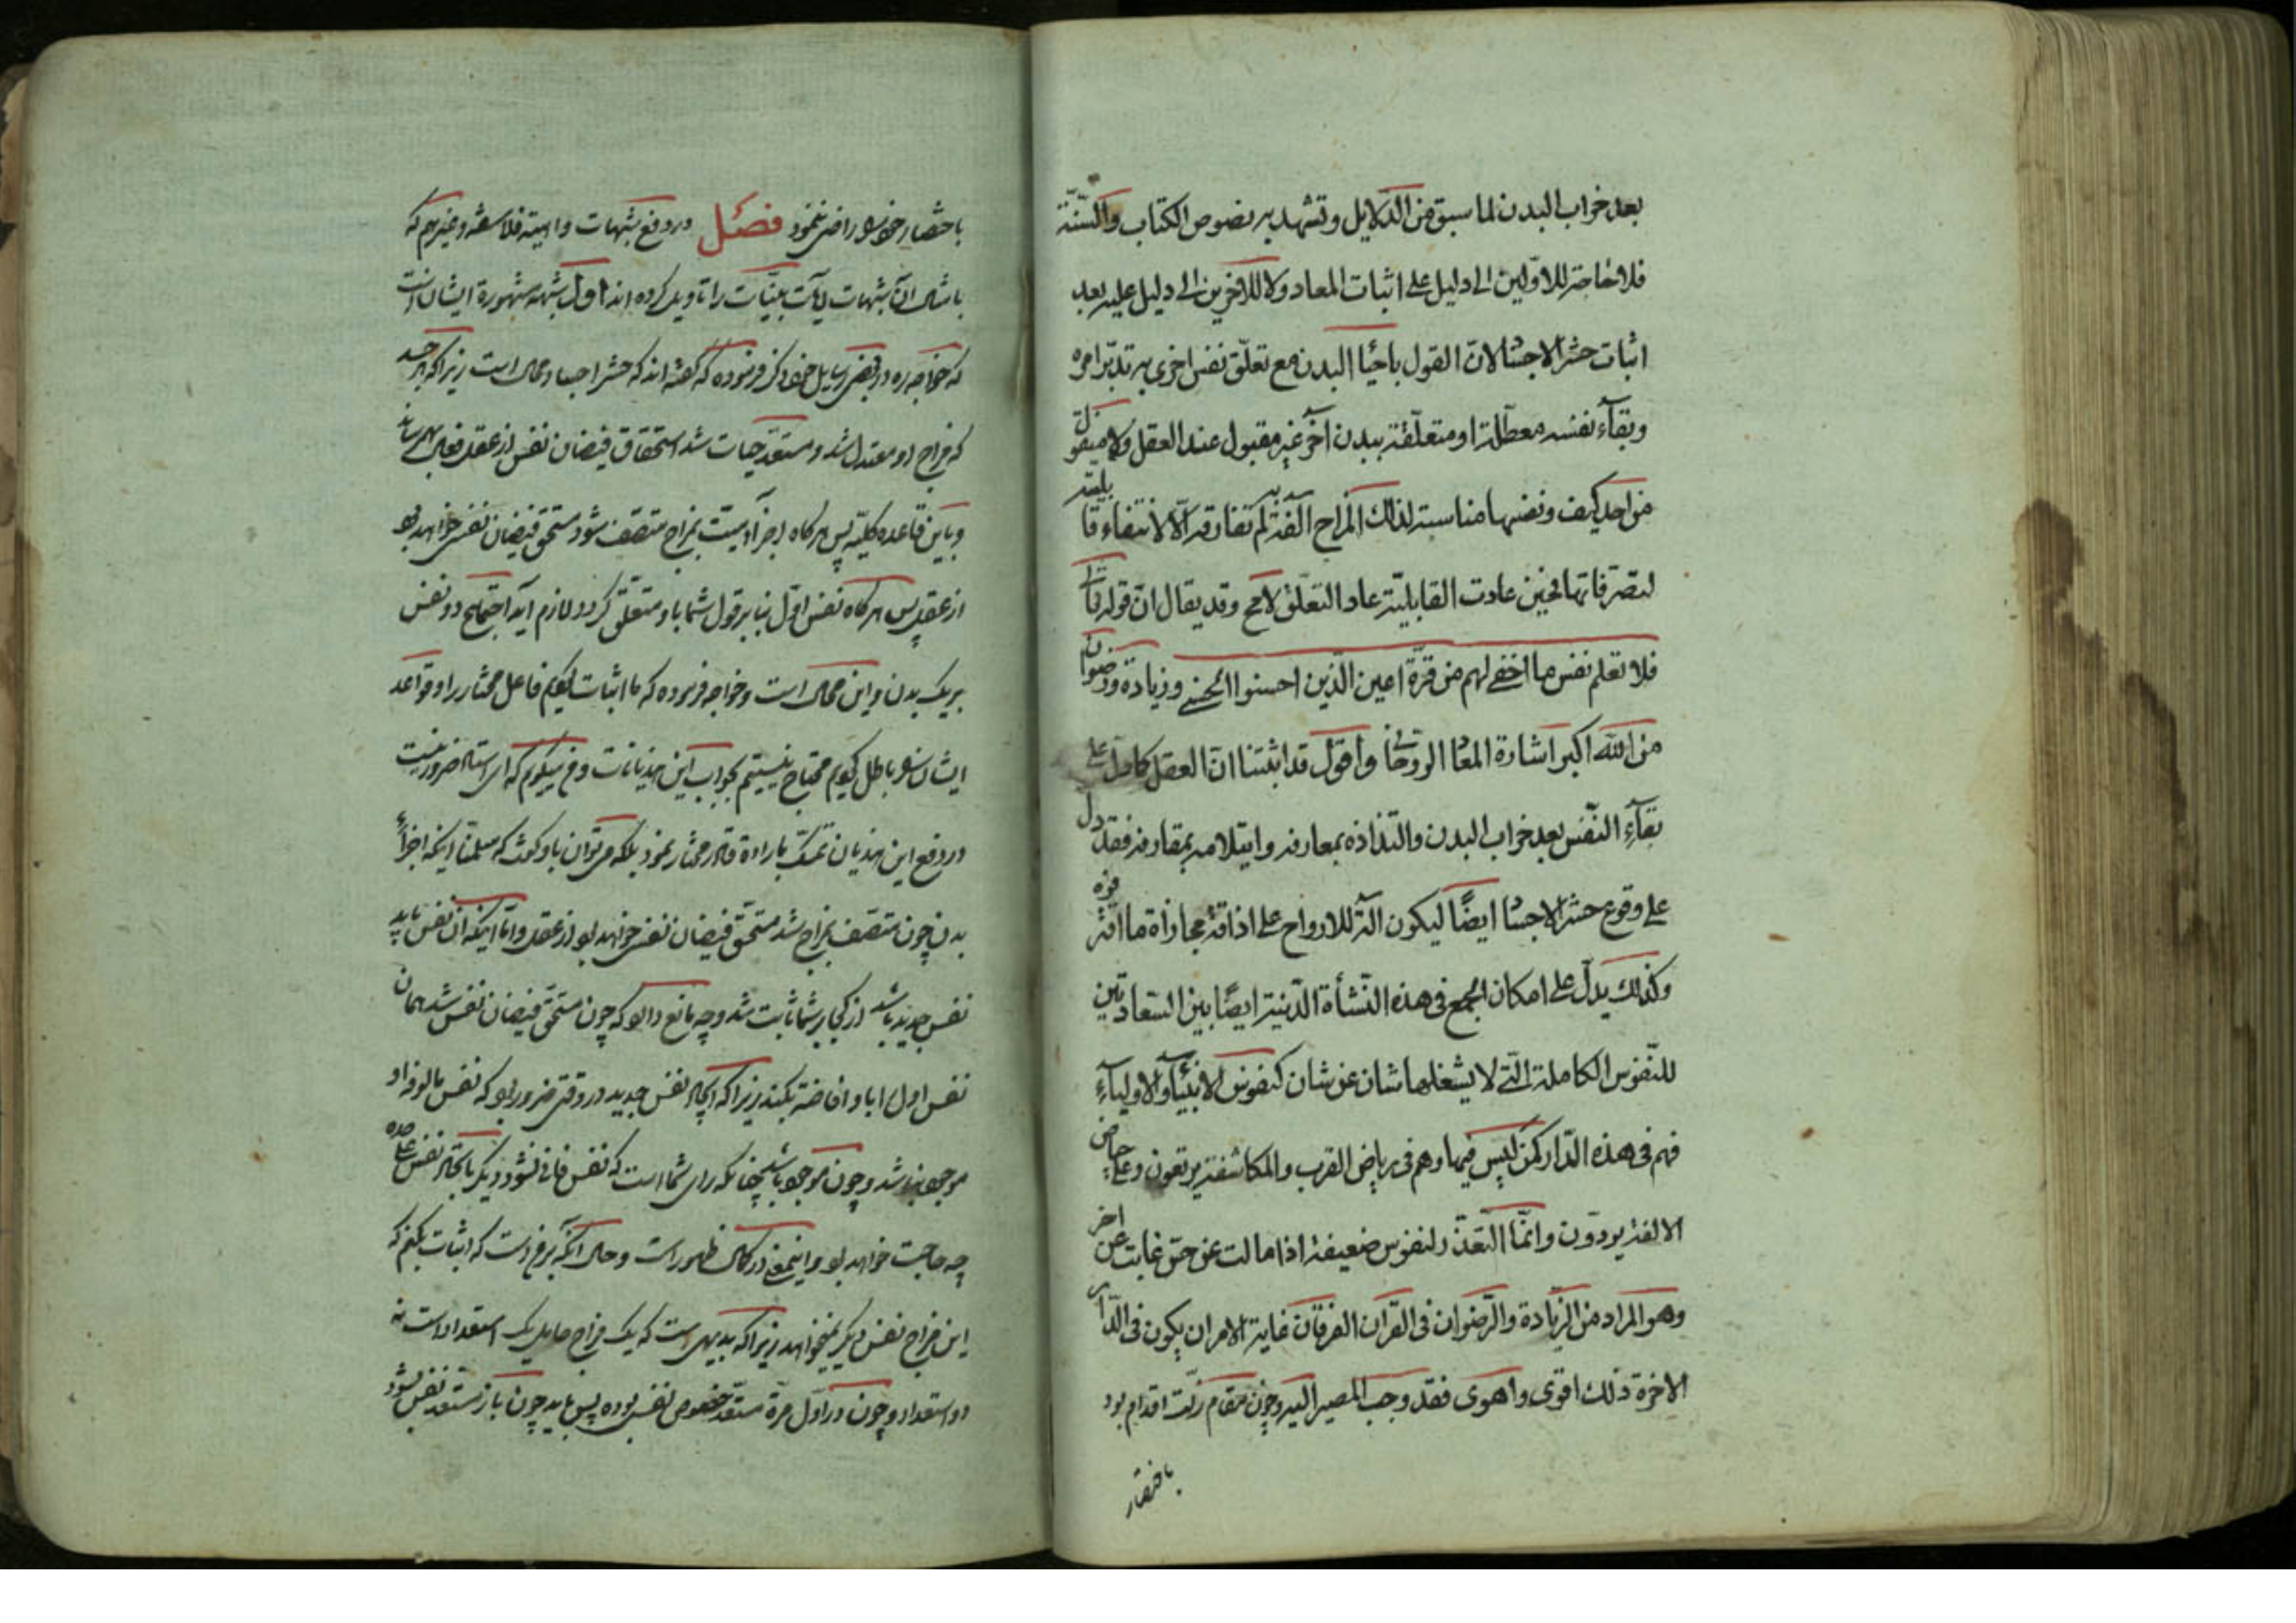 بعد خراب البدن لما سبق من الدلایل وتشهد به نصوص الکتاب والسّنّة
فلا حاجة للاوّلین الی دلیل علی اثبات المعاد ولا للاخرین الی دلیل علیه بعد
اثبات حشر الاجساد لان القول باحیا البدن مع تعلّق نفس اخری به تدبّر امره
وبقآء نفسه معطّلة او متعلّقة ببدن آخر غیر مقبول عند العقل ولا منقول
من احد کیف ونفسها مناسبة لذلک المزاج الفة به لم تفارقه الّا لانتفاء قابلیّته
لتصرّفاتها فحین عادت القابلیّة عاد التعلّق لا مح وقد یقال انّ قوله تعالی
فلا تعلم نفس ما اخفی لهم من قرّة اعین الّذین احسنوا الحسنی وزیادة ورضوان
من الله اکبر اشارة المعاد الروحانی واقول قد اثبتنا انّ العقل کما دلّ علی
بقآء النّفس بعد خراب البدن والتذاذه بمعارفه وابتلامه بمقارفه فقد دلّ
علی وقوع حشر الاجساد ایضًا لیکون آلة للارواح علی اذاقة مجازاة ما اقترفوه
وکذلک یدلّ علی امکان الجمع فی هذه النّشأة الدّنیة ایضًا بین السّعادتین
للنّفوس الکاملة الّتی لا یشغلها شان عن شان کنفوس الانبیآء والاولیآء
فهم فی هذه الدّار کمن لیس فیها وهم فی ریاض القرب والمکاشفة یرتعون وعلی حیاض
الالفة یردون وانّما التّعذّر لنفوس ضعیفة اذا مالت عن حق غابت عن اخر
وهو المراد من الزّیادة والرّضوان فی القرآن الفرقان غایة الامر ان یکون فی الدّار
الاخرة ذلک اقوی واهوی فقد وجب المصیر الیه وچون مقام زلّت اقدام بود
باختصار
باختصار خوش راضی نمود فصل در دفع شبهات واهیه فلاسفه وغیرهم که
باشال آن شبهات آیات بیّنات را تاویل کرده اند اول شبهه مشهوره ایشان است
که خواجه ره در بعضی رسایل خود ذکر فرموده که گفته اند که حشر اجساد محال است زیرا که هر جسد
که مزاج او معتدل شد ومستعدّ حیات شد استحقاق فیضان نفس از عقل فعال بهم رساند
وباین قاعده کلیّه پس هرگاه اجزآء میّت بمزاج متصف شود مستحق فیضان نفس خواهد بود
از عقل پس هرگاه نفس اوّل بنا بر قول شما باو متعلّق گردد لازم آید اجتماع دو نفس
بر یک بدن واین محال است وخواجه فرموده که ما اثبات کنیم فاعل مختار را وقواعد
ایشان را باطل کنیم محتاج نیستیم بجواب این هذیانات وفع میگویم که ای استاد ضرور نیست
در دفع این هذیان تمسّک باراده قادر مختار نمود بلکه میتوان باو گفت که مسلّمنا اینکه اجزآء
بدن چون متصف بمزاج شد مستحق فیضان نفس خواهد بود از عقل وامّا اینکه آن نفس باید
نفس جدید باشد از کجا بر شما ثابت شد وچه مانع دارد که چون مستحق فیضان نفس شد همان
نفس اول را باو افاضه بکند زیرا که ایجاد نفس جدید در وقتی ضرور بود که نفس مالوفه او
موجود نباشد وچون موجود باشد چنانکه رای شما است که نفس فانی نشود دیگر بایجاد نفس علیحده
چه حاجت خواهد بود واینمعنی در کمال ظهور است وحال آنکه بر ماست که اثبات بکنم که
این مزاج نفس دیگر نمیخواهد زیرا که بدیهی است که یک مزاج حامل یک استعداد است نه
دو استعداد وچون در اوّل مرّة مستعدّ خصوص نفس بوده پس باید چون باز مستعد نفس شود